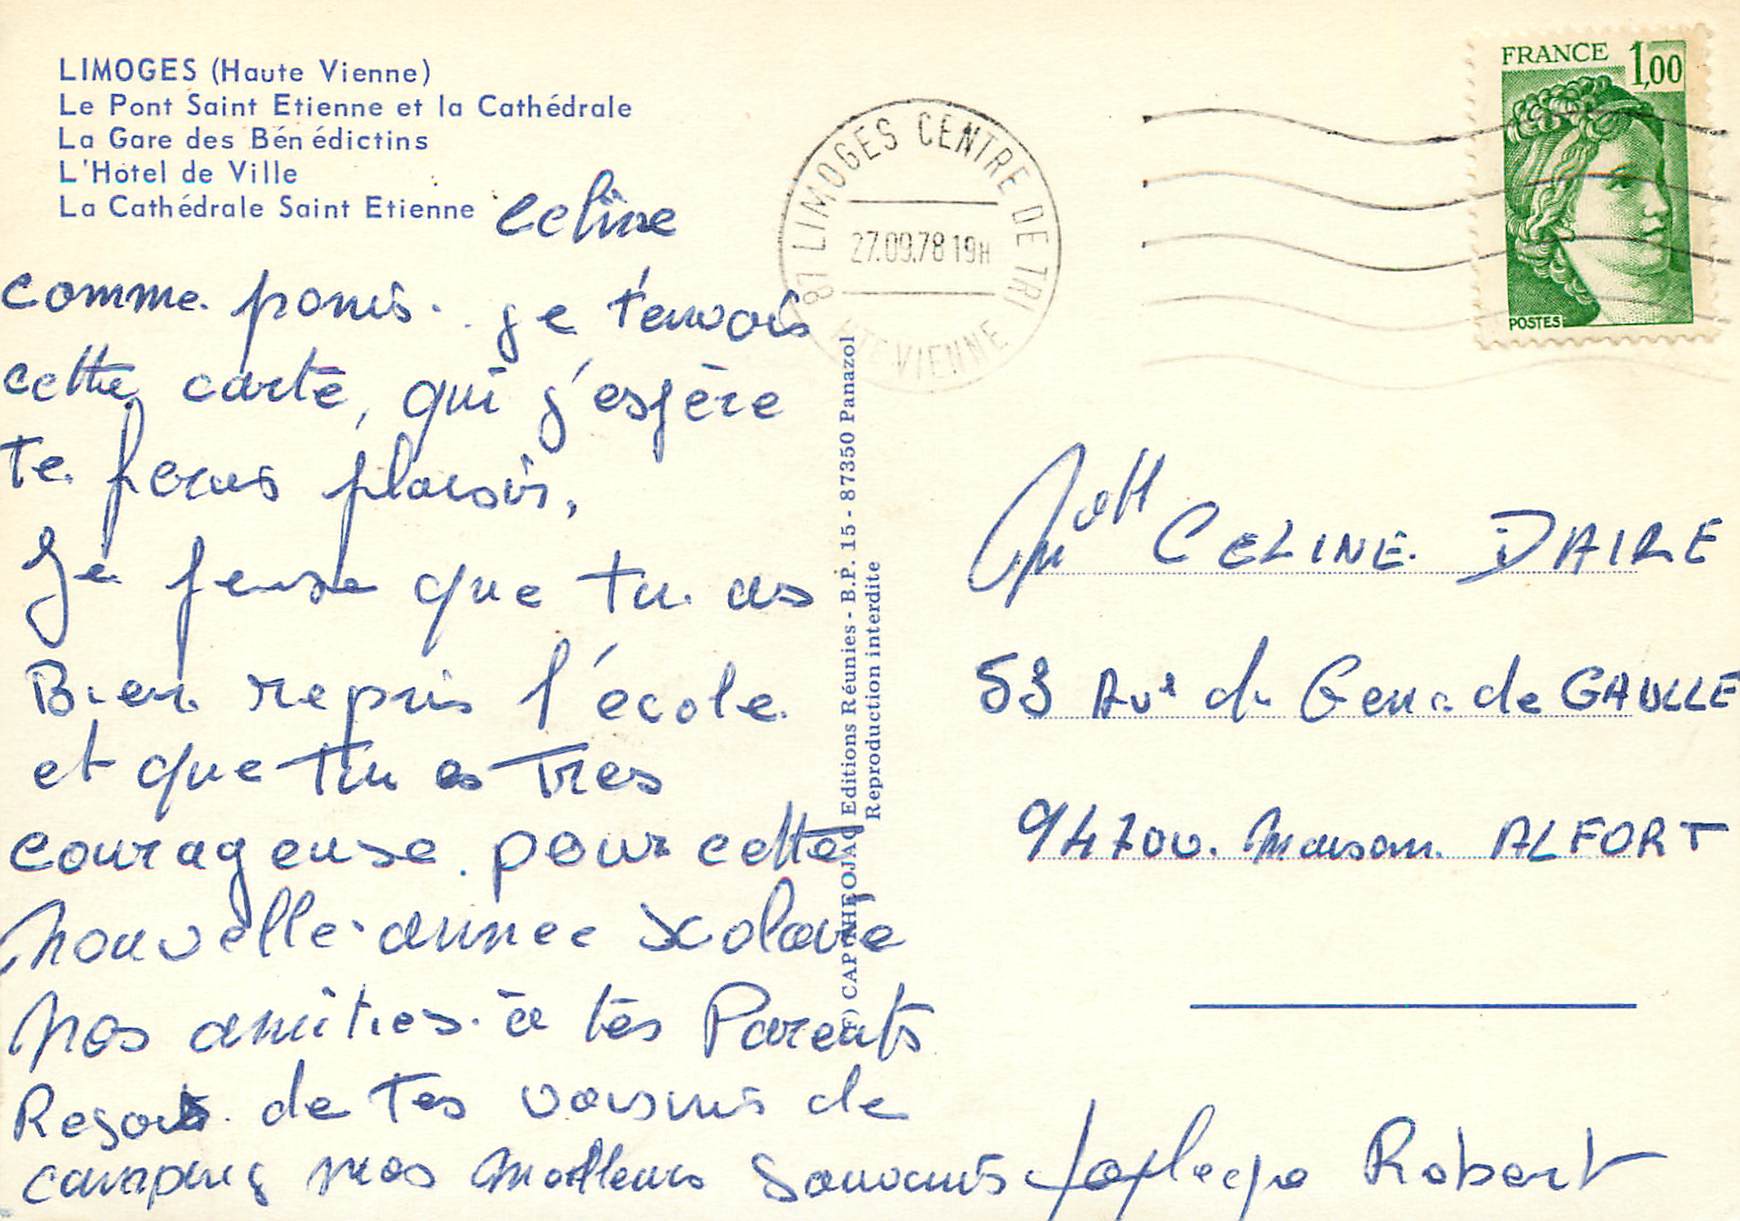 LIMOGES (Haute Vienne)
Le Pont Saint Etienne et la Cathédrale
La Gare des Bén édictins
L'Hôtel de Ville
La Cathédrale Saint Etienne
Celine
comme promis. je t'envois
cette carte, qui j'espère
te feras plaisir,
Je pense que tu as
Bien repris l'école
et que tu es Tres
courageuse. pour cette
nouvelle annee scolaire
Nos amities. à tes Parents
de Tes voisins de
camping nos meilleurs souvenirs
Robert
(c) CAP-THEOJAC Editions Réunies - B.P. 15 - 87350 Panazol
Reproduction interdite
87 LIMOGES CENTRE DE TRI
27.09.78 19H
HTE VIENNE
FRANCE 1,00
POSTES
Melle CELINE DAIRE
53 Ave du Gen. de GAULLE
94700. Maison ALFORT